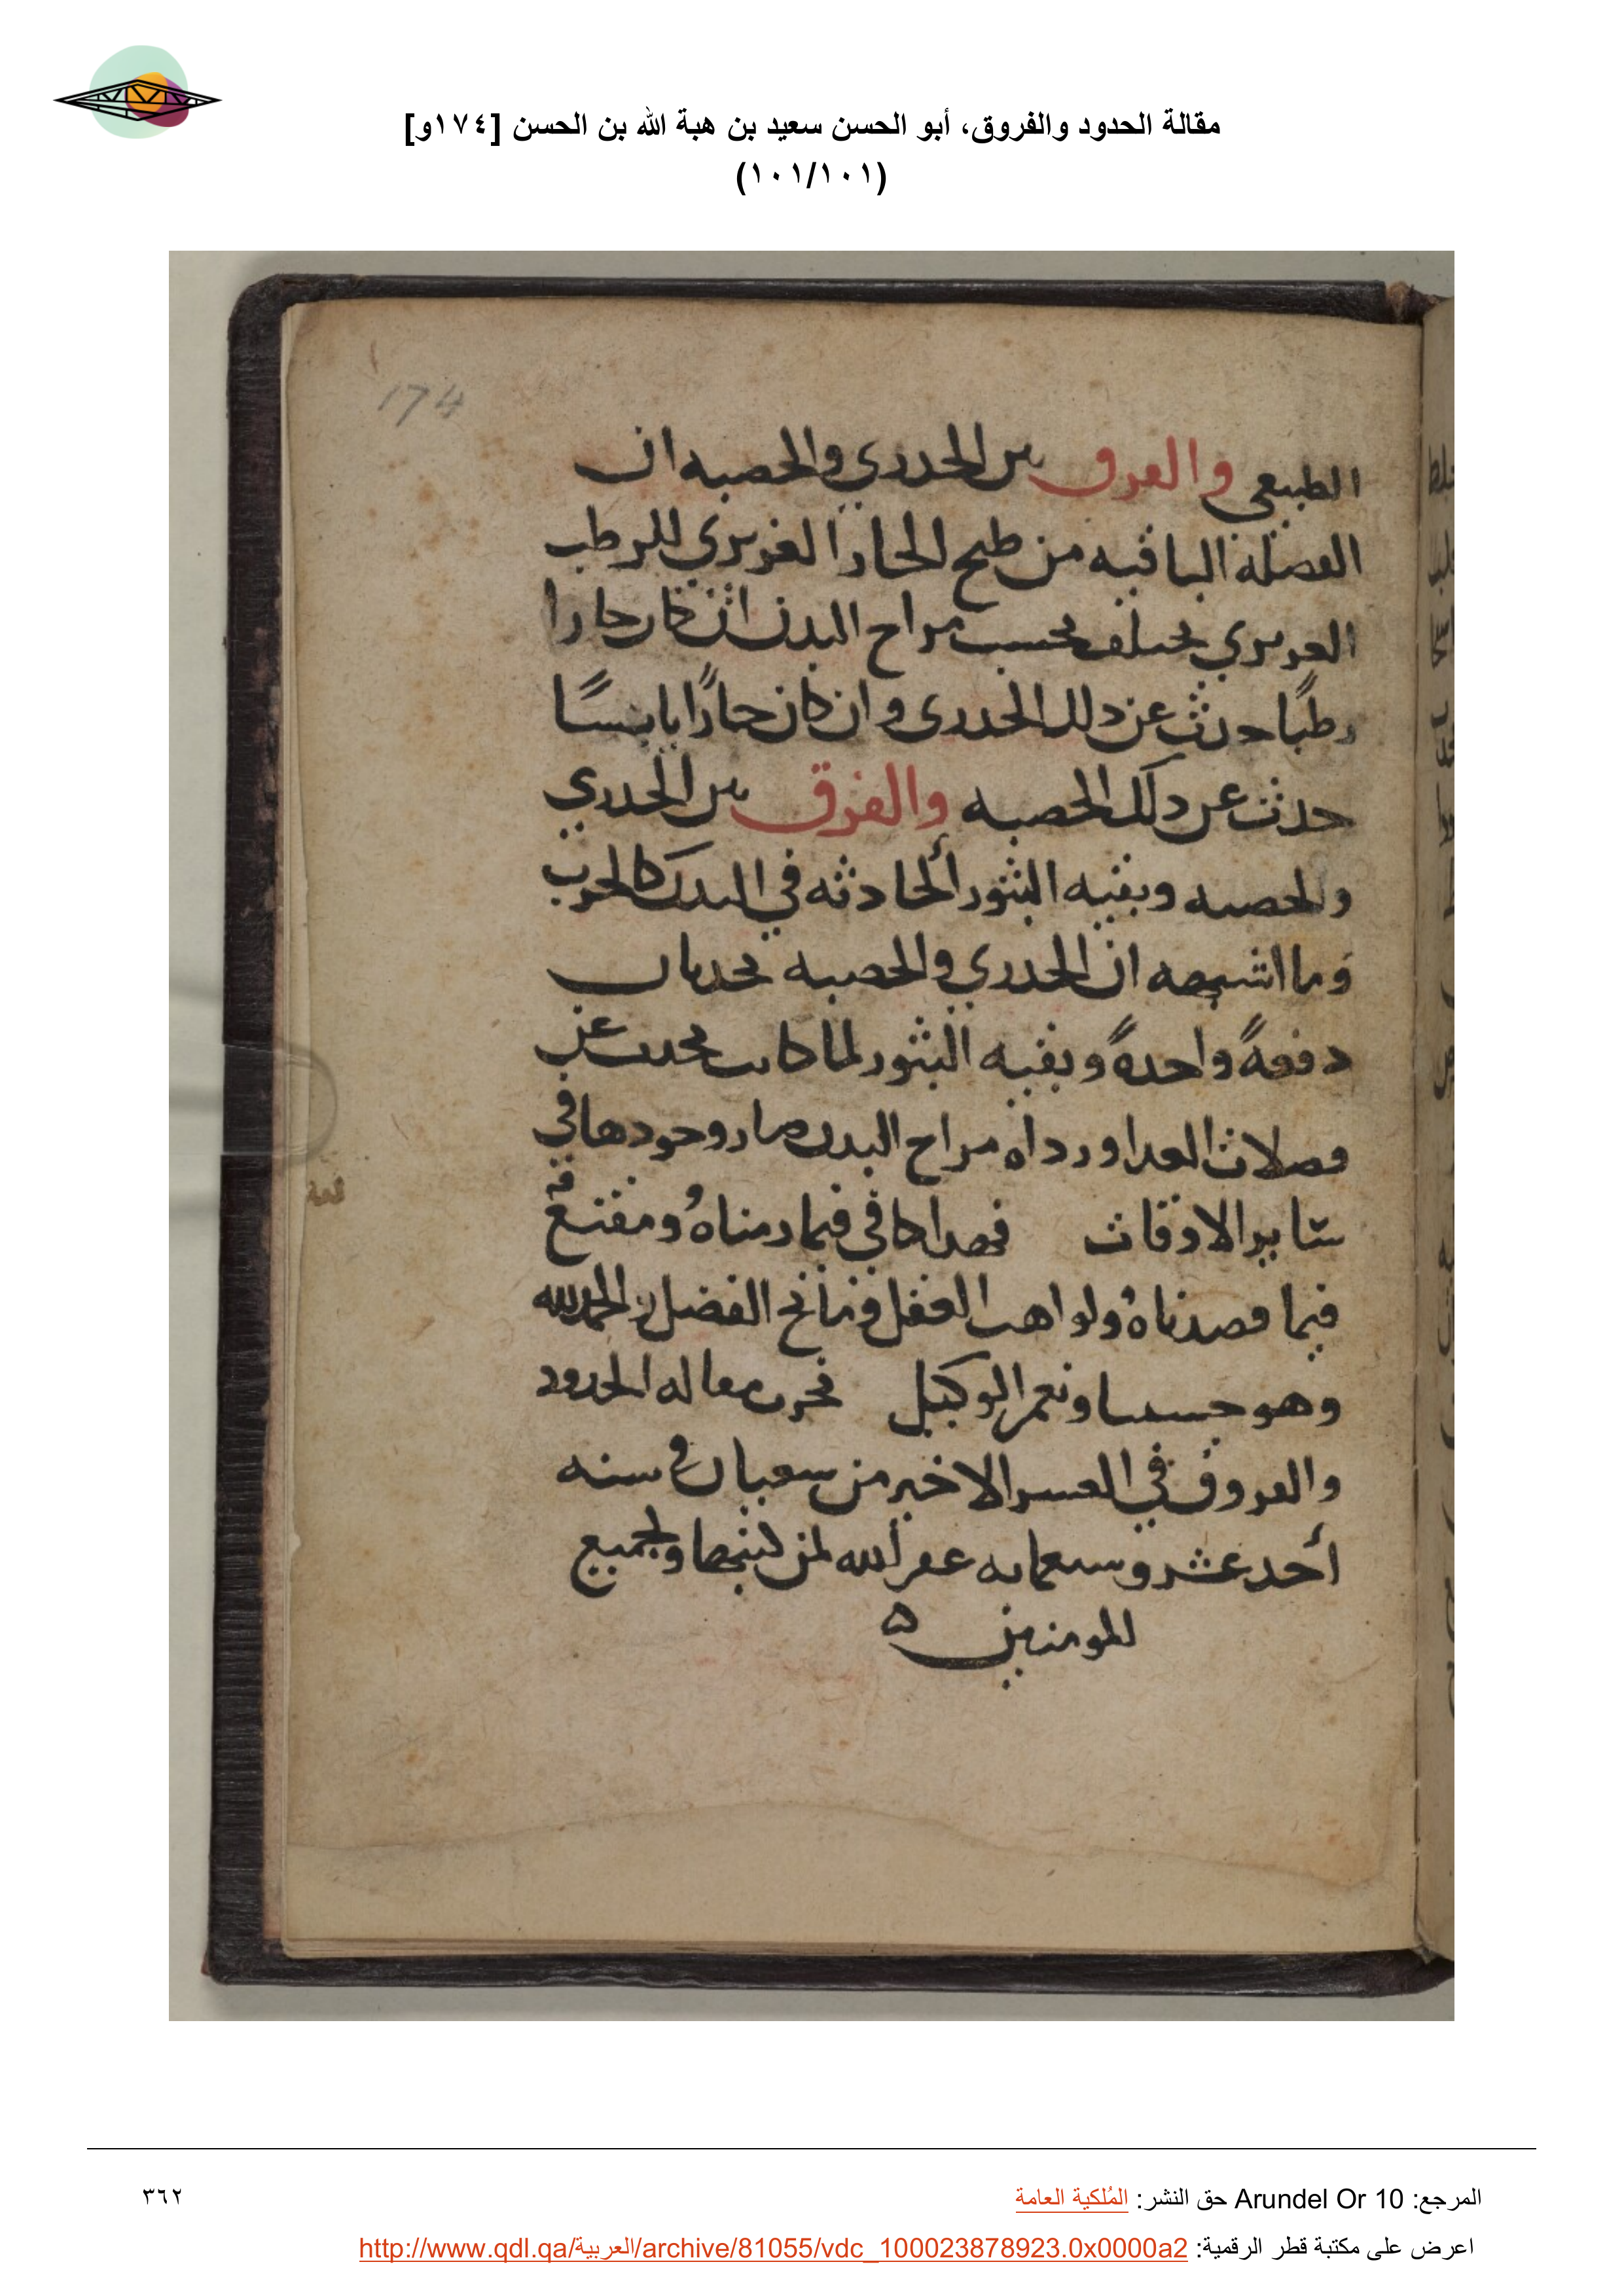 مقالة الحدود والفروق، أبو الحسن سعيد بن هبة الله بن الحسن [١٧٤و]
(١٠١/١٠١)
174
الطبيعي والفرق بين الجدري والحصبه ان
الفضلة الباقيه من طبخ الحار الغريزي للرطب
الغريزي يختلف بحسب مزاج البدن ان كان حارا
رطبًا حدث عن ذلك الجدري وان كان حارًا يابسًا
حدث عن ذلك الحصبه والفرق بين الجدري
والحصبه وبقيه البثور الحادثه في البدن كالجرب
وما اشبهه ان الجدري والحصبه يحدثان
دفعهً واحدهً وبقيه البثور لما كانت تحدث عن
فضلات الغدا ورداه مزاج البدن صار وجودها في
سايرالاوقات فهذا كافي فيما رمناهُ ومقنع
فيما قصدناهُ ولواهب العقل ومانح الفضل الحمدلله
وهو حسبنا ونعم الوكيل نجزت مقاله الحدود
والفروق في العشر الاخير من شعبان في سنه
أحد عشر وسبعمايه غفر الله لمن كتبها ولجميع
المومنين ه
المرجع: Arundel Or 10 حق النشر: المُلكية العامة
٣٦٢
اعرض على مكتبة قطر الرقمية: http://www.qdl.qa/العربية/archive/81055/vdc_100023878923.0x0000a2